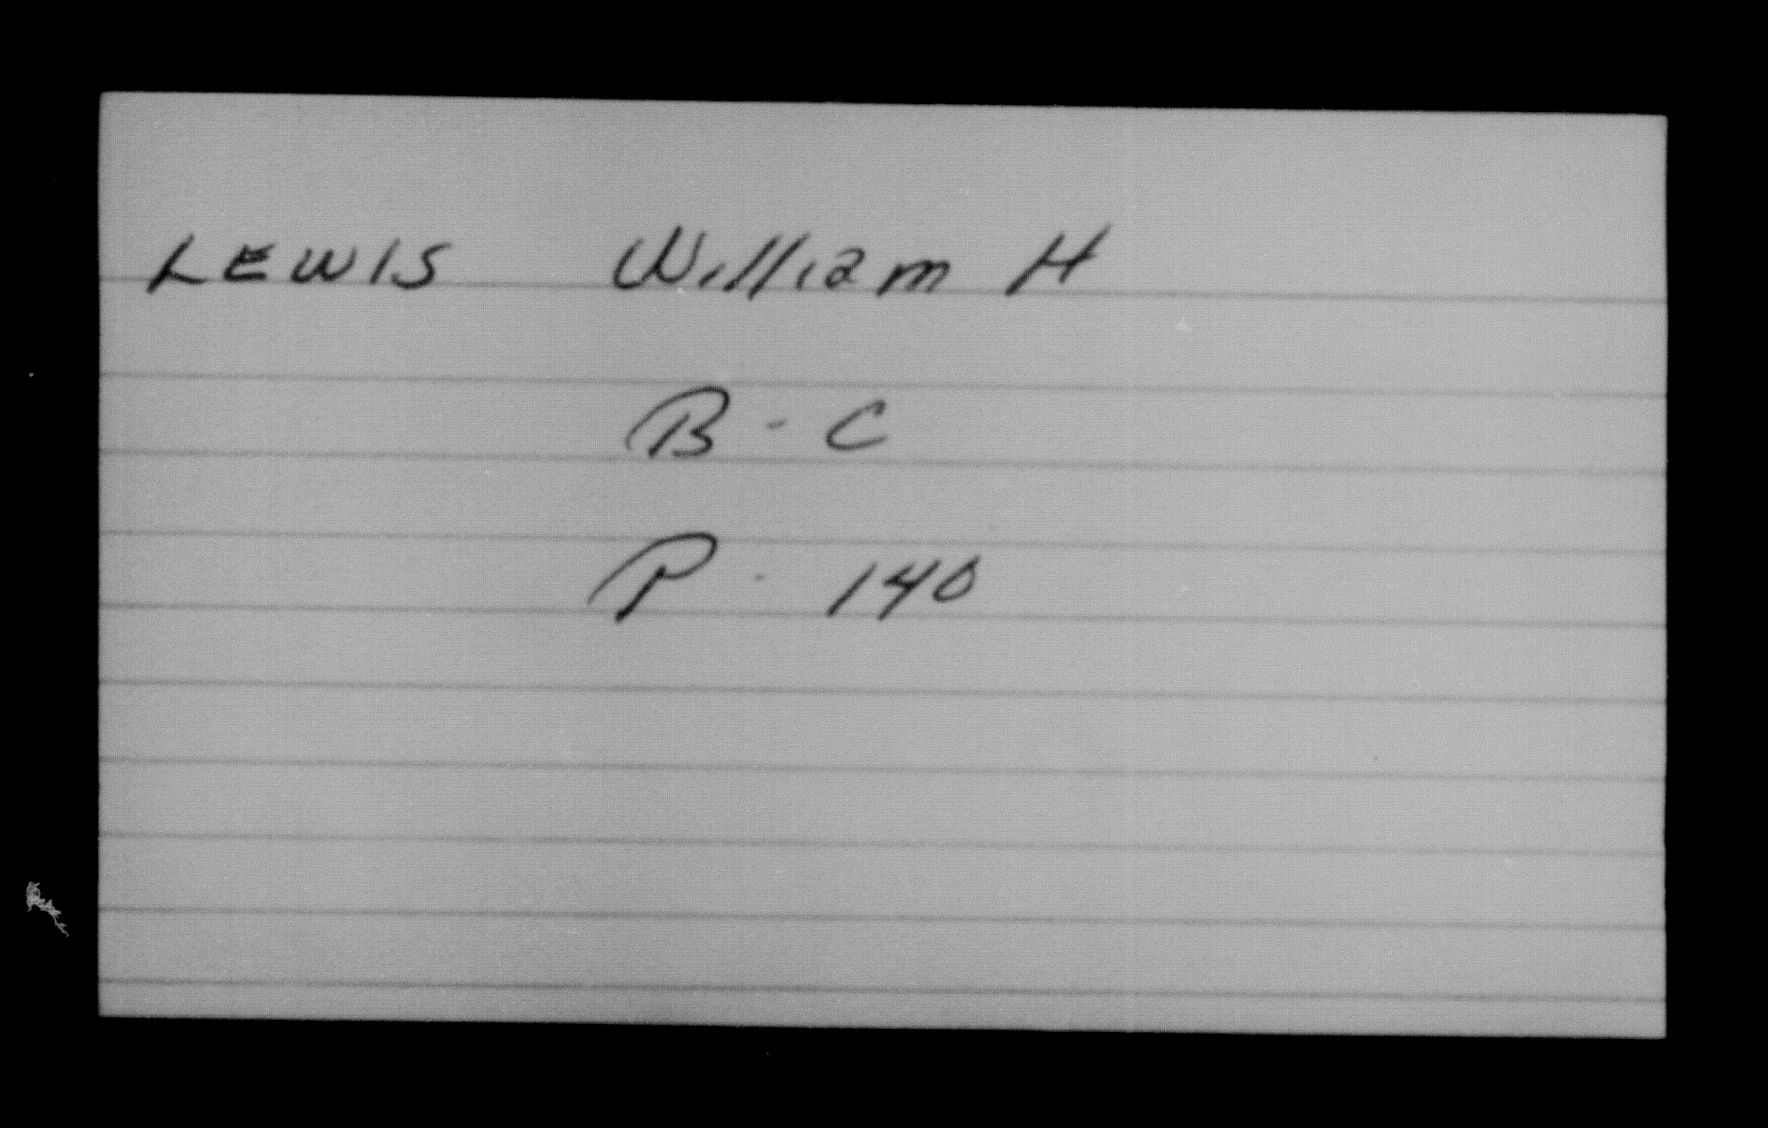 LEWIS William H
B - C
P - 140